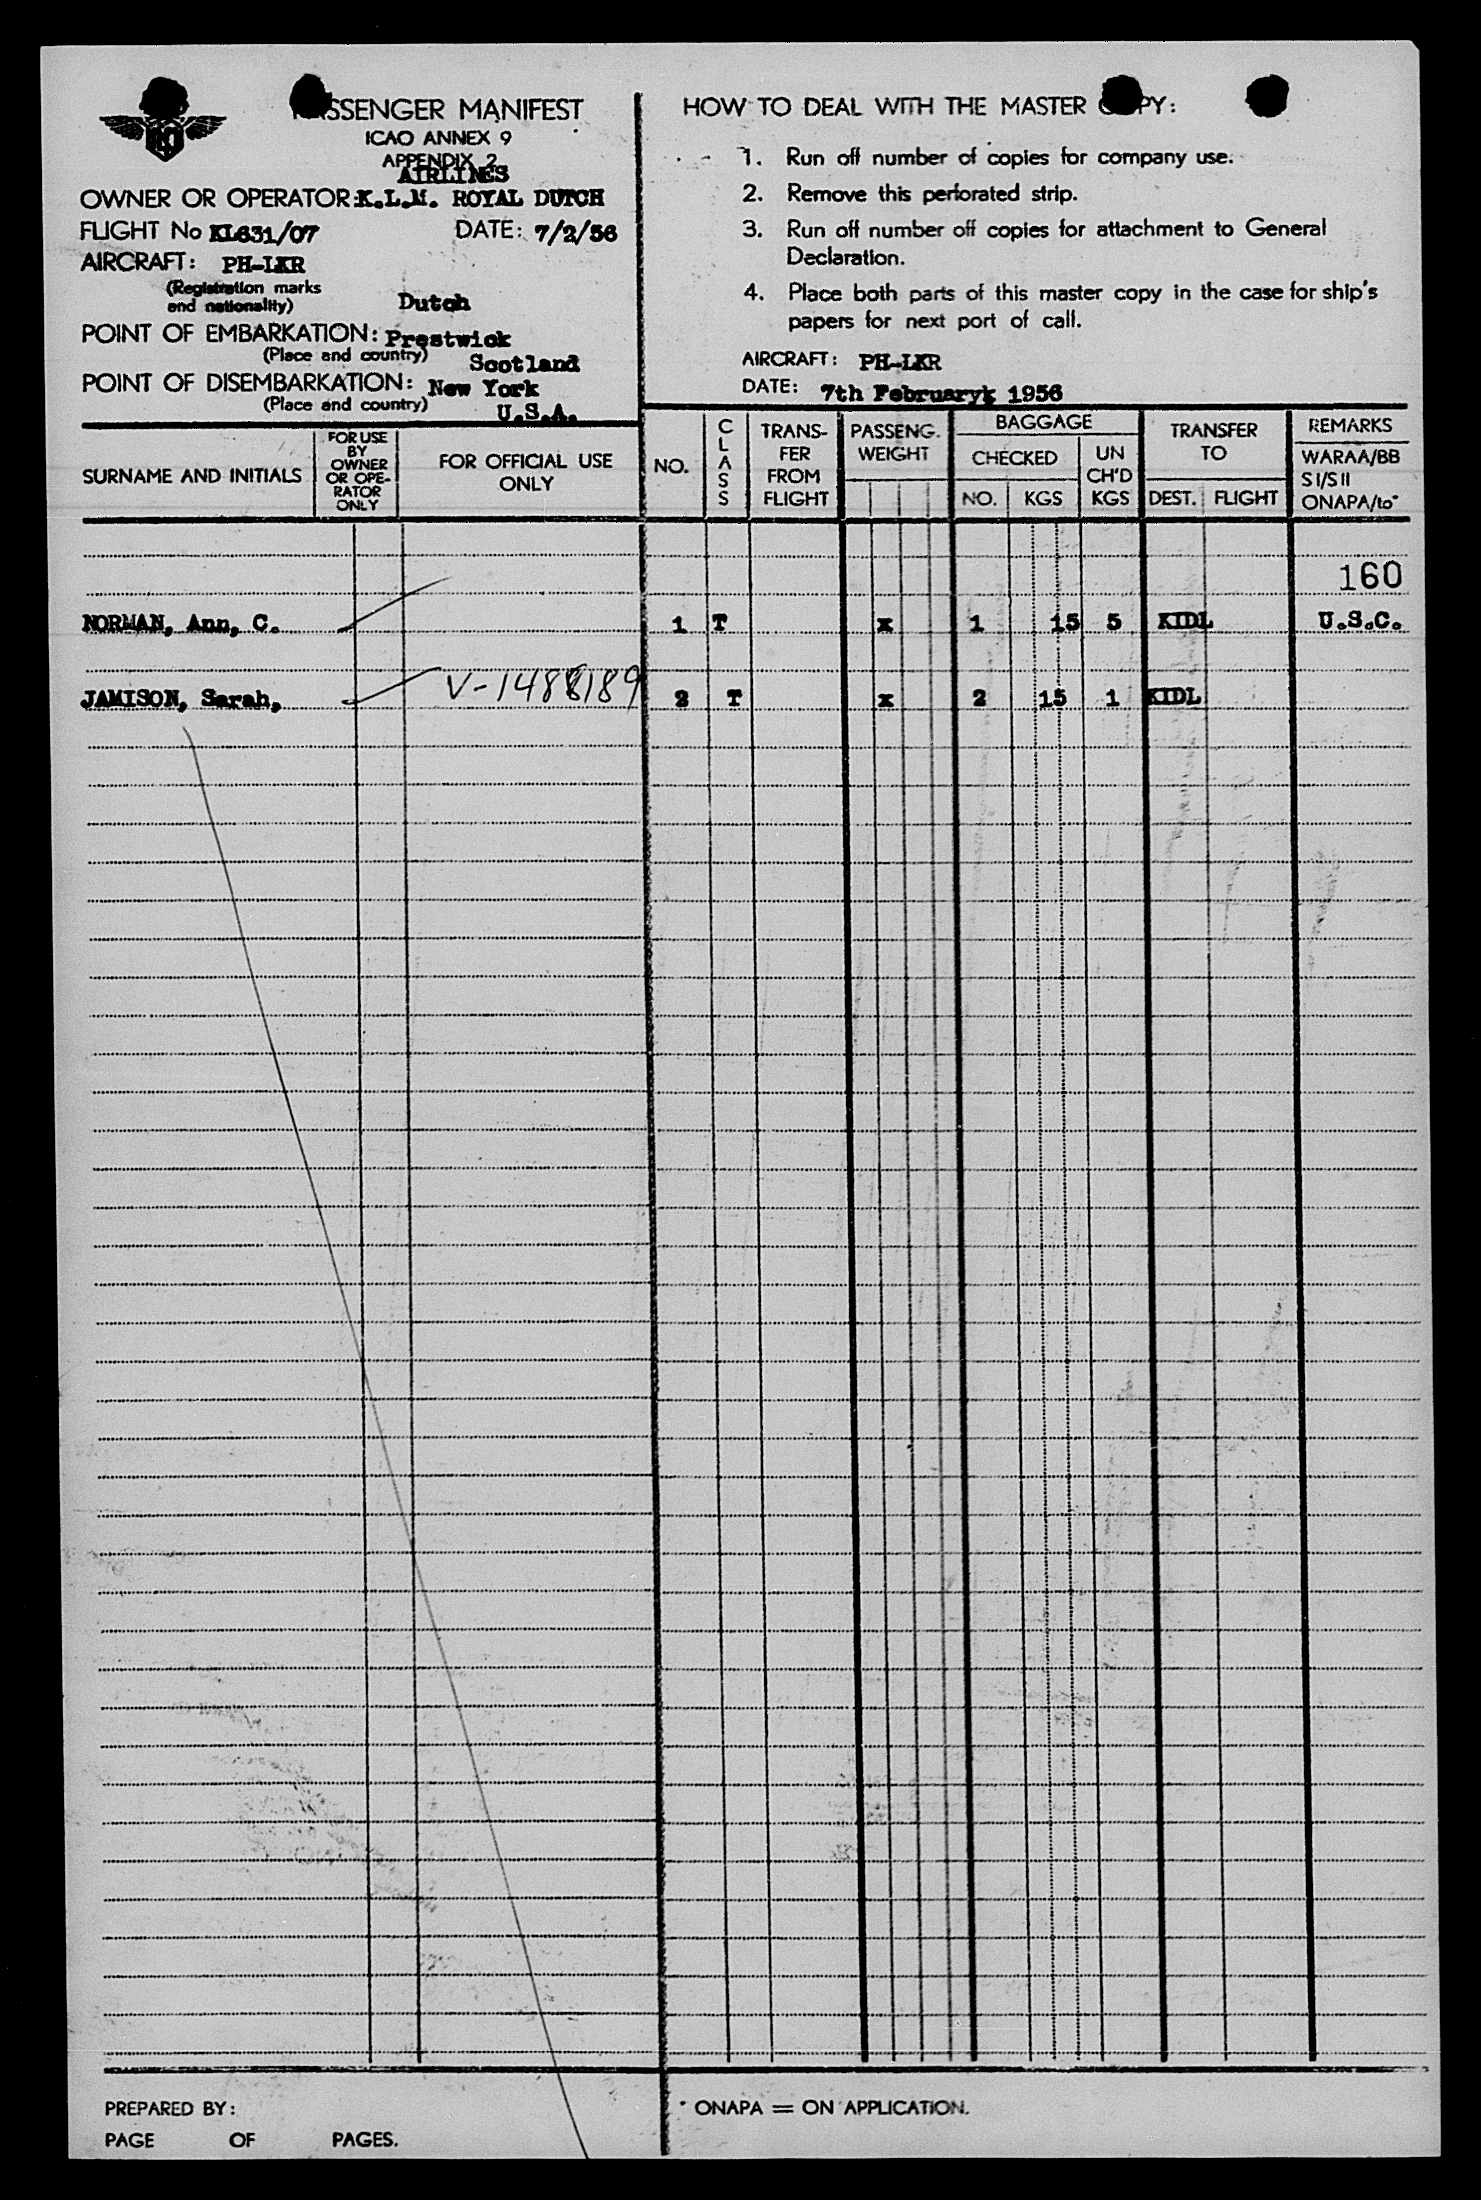 PASSENGER MANIFEST
ICAO ANNEX 9
APPENDIX 2
AIRLINES
OWNER OR OPERATOR: K.L.M. ROYAL DUTCH
FLIGHT No KL631/07 DATE: 7/2/56
AIRCRAFT: PH-LKR
(Registration marks
and nationality) Dutch
POINT OF EMBARKATION: Prestwick
(Place and country) Scotland
POINT OF DISEMBARKATION: New York
(Place and country) U.S.A.
HOW TO DEAL WITH THE MASTER COPY:
1. Run off number of copies for company use.
2. Remove this perforated strip.
3. Run off number off copies for attachment to General
Declaration.
4. Place both parts of this master copy in the case for ship's
papers for next port of call.
AIRCRAFT: PH-LKR
DATE: 7th Februaryk 1956
SURNAME AND INITIALS
FOR USE
BY
OWNER
OR OPE-
RATOR
ONLY
FOR OFFICIAL USE
ONLY
NO.
CLASS
TRANS-
FER
FROM
FLIGHT
PASSENG.
WEIGHT
BAGGAGE
CHECKED
NO. KGS
UN
CH'D
KGS
TRANSFER
TO
DEST. FLIGHT
REMARKS
WARAA/BB
SI/SII
ONAPA/to*
160
NORMAN, Ann, C. 1 T x 1 15 5 KIDL U.S.C.
JAMISON, Sarah, V-1488189 2 T x 2 15 1 KIDL
PREPARED BY:
PAGE OF PAGES.
* ONAPA = ON APPLICATION.